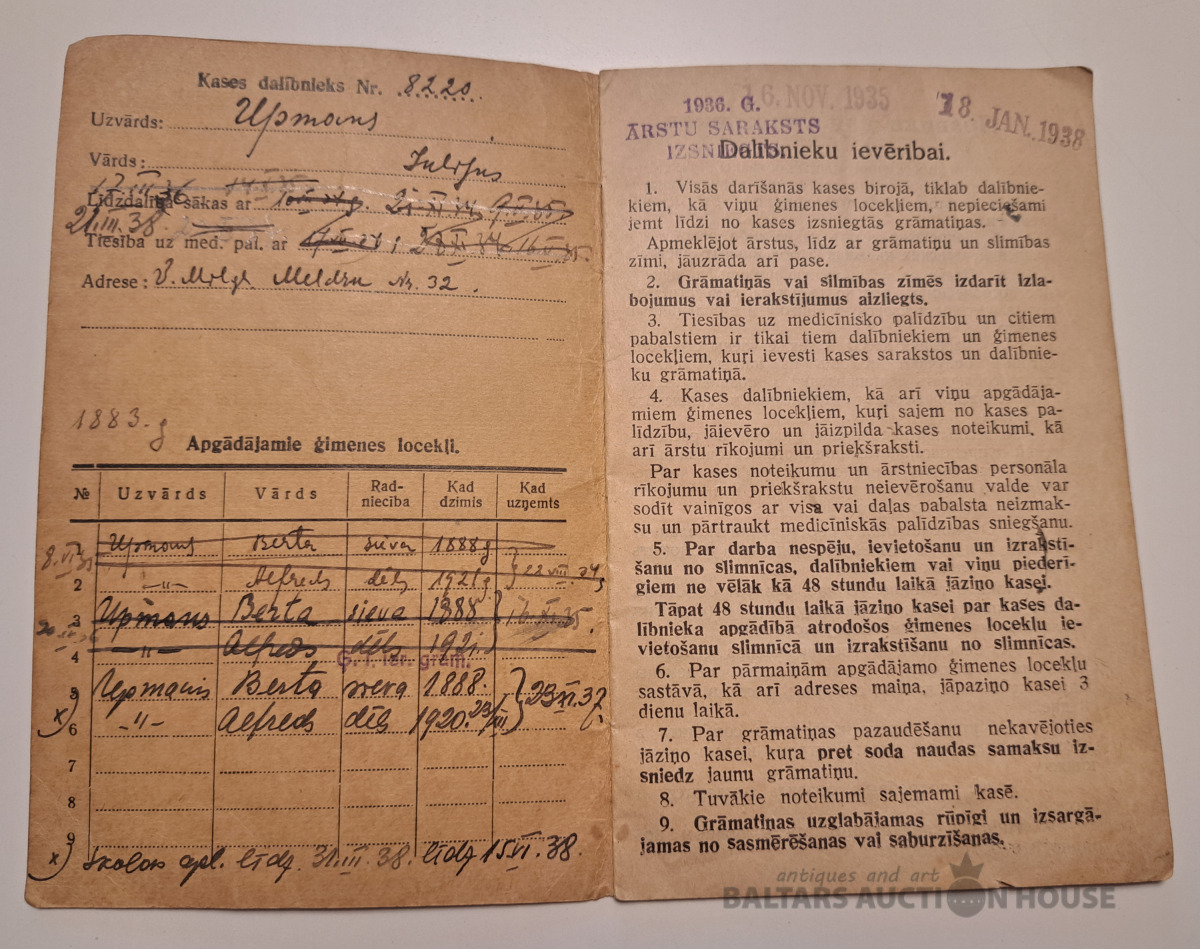 Kases dalībnieks Nr. 8220.
Uzvārds: Upmans
Vārds: Julijus
Līdzdalība sākas ar
21.III.38.
Tiesība uz med. pal. ar
Adrese: V. Mīlgr. Meldru Nr. 32.
1883. g
Apgādājamie ģimenes locekļi.
№ Uzvārds Vārds Radniecība Kad dzimis Kad uzņemts
Upmans Berta sieva 1888g
2 -"- Alfreds dēls 1921g 22 VIII. 34
3 Upmans Berta sieva 1888
4 -"- Alfreds dēls 1921.
Upmanis Berta sieva 1888. 23 XI. 37.
x) 6 -"- Alfreds dēls 1920. 23/VII
7
8
9
x) Skolas apl. līdz 31.III.38. līdz 15 VI. 38.
1936. G.
ĀRSTU SARAKSTS
IZSNIEGTS
16. NOV. 1935
18. JAN. 1938
Dalībnieku ievērībai.
1. Visās darīšanās kases birojā, tiklab dalībnie-
kiem, kā viņu ģimenes locekļiem, nepieciešami
jemt līdzi no kases izsniegtās grāmatiņas.
Apmeklējot ārstus, līdz ar grāmatiņu un slimības
zīmi, jāuzrāda arī pase.
2. Grāmatiņās vai silmības zīmēs izdarīt izla-
bojumus vai ierakstījumus aizliegts.
3. Tiesības uz medicīnisko palīdzību un citiem
pabalstiem ir tikai tiem dalībniekiem un ģimenes
locekļiem, kuŗi ievesti kases sarakstos un dalībnie-
ku grāmatiņā.
4. Kases dalībniekiem, kā arī viņu apgādāja-
miem ģimenes locekļiem, kuŗi sajem no kases pa-
līdzību, jāievēro un jāizpilda kases noteikumi, kā
arī ārstu rīkojumi un priekšraksti.
Par kases noteikumu un ārstniecības personāla
rīkojumu un priekšrakstu neievērošanu valde var
sodīt vainīgos ar visa vai daļas pabalsta neizmak-
su un pārtraukt medicīniskās palīdzības sniegšanu.
5. Par darba nespēju, ievietošanu un izraksti-
šanu no slimnīcas, dalībniekiem vai viņu piederī-
giem ne vēlāk kā 48 stundu laikā jāziņo kasei.
Tāpat 48 stundu laikā jāziņo kasei par kases da-
lībnieka apgādībā atrodošos ģimenes locekļu ie-
vietošanu slimnīcā un izrakstīšanu no slimnīcas.
6. Par pārmaiņām apgādājamo ģimenes locekļu
sastāvā, kā arī adreses maiņa, jāpaziņo kasei 3
dienu laikā.
7. Par grāmatiņas pazaudēšanu nekavējoties
jāziņo kasei, kuŗa pret soda naudas samaksu iz-
sniedz jaunu grāmatiņu.
8. Tuvākie noteikumi sajemami kasē.
9. Grāmatiņas uzglabājamas rūpīgi un izsargā-
jamas no sasmērēšanas vai saburzīšanas.
antiques and art
BALTARS AUCTION HOUSE